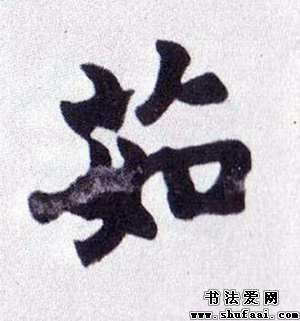 茹
书法爱网
www.shufaai.com